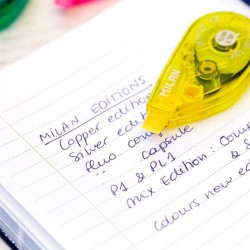 MILAN EDITIONS
Copper edition
Silver edit
plus com
capsule
P1 & PL1
mix Edition : Comp
Colours new ed
MILAN